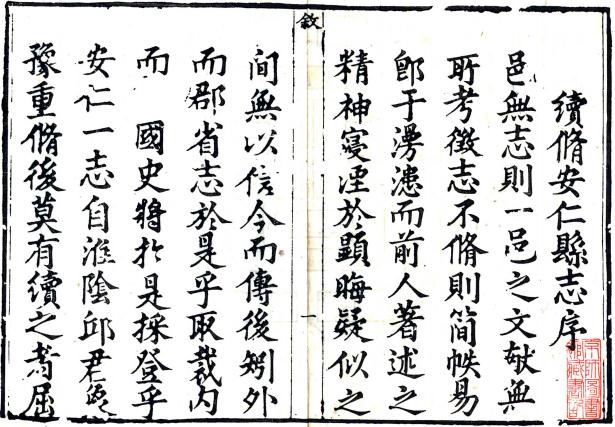 續脩安仁縣志序
邑無志則一邑之文献無
所考徵志不脩則简帙易
即于漫漶而前人著述之
精神寖湮於顯晦疑似之
敘
一
间無以信今而傳後矧外
而郡省志於是乎取裁内
而 國史將於是採登乎
安仁一志自淮陰邱君
豫重脩後莫有續之者屈